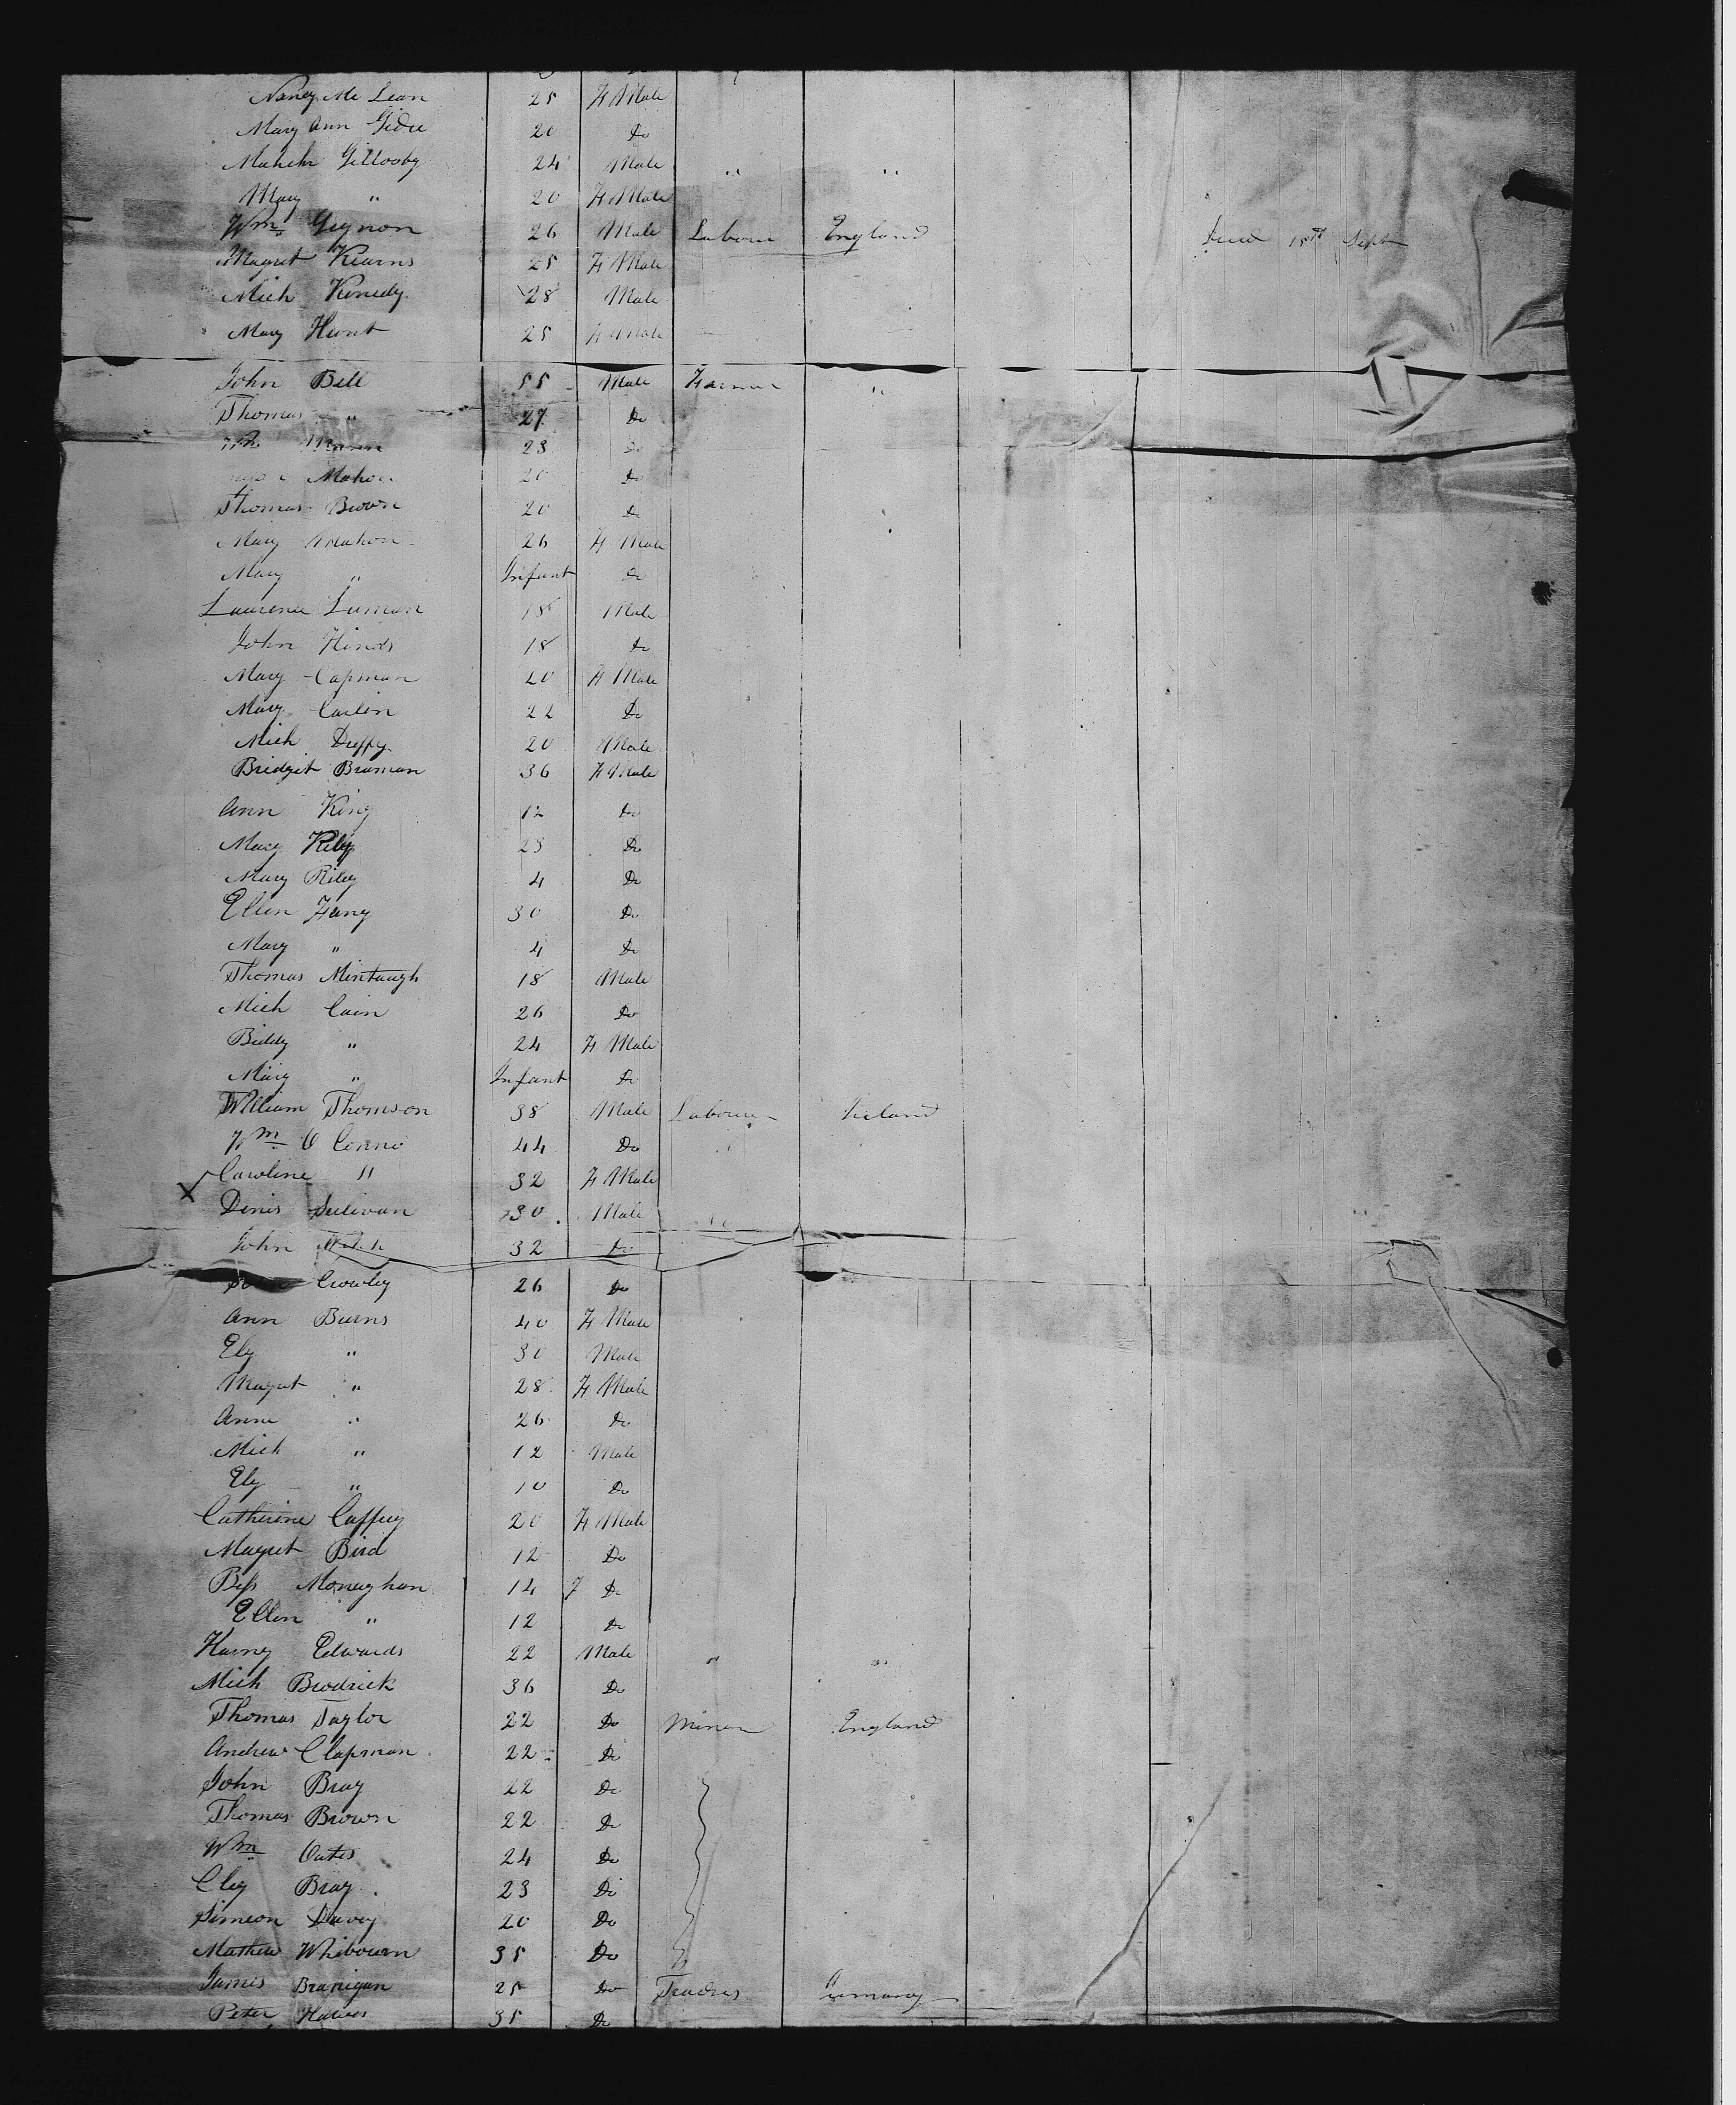 Nancy Mc Lean 25 F Male
Mary Ann Gidu 20 Do
Gillooby 24 Male " "
Mary " 20 F Male
Wm Gıynon 26 Male Labour England 15th Sept
Magret Kearns 25 F Male
Mich Kenedy 28 Male
Mary Hunt 25 F Male
John Bell 55 Male Farmer "
Thomas " 27 Do
Wm 23 Do
Mahon 20 Do
Thomas Brown 20 Do
Mary Mahon 26 F Male
Mary " Infant Do
Laurence Luman 18 Male
John Hinds 18 Do
Mary Capman 20 F Male
Mary Carlin 22 Do
Mich Duffy 20 Male
Bridget Braman 36 F Male
Ann King 12 Do
Mary Riley 23 Do
Mary Riley 4 Do
Ellen Fany 30 Do
Mary " 4 Do
Thomas Mintaugh 18 Male
Mich Cain 26 Do
Biddy " 24 F Male
Mary " Infant Do
William Thomson 38 Male Labour Ireland
Wm O Conno 44 Do "
X Caroline " 32 F Male
Dinis Sulivan 30 Male "
John 32 Do
Crowley 26 Do
Ann Burns 40 F Male
Ely " 30 Male
Magret " 28 F Male
Anne " 26 Do
Mich " 12 Male
Ely " 10 Do
Catherine Caffrey 20 F Male
Magret Bird 12 Do
Bess Monaghan 14 F Do
Ellen " 12 Do
Harney Edwards 22 Male " "
Mich Brodrick 36 Do
Thomas Taylor 22 Do Miner England
Andrew Clapman 22 Do
John Bray 22 Do
Thomas Brown 22 Do
Wm Oates 24 Do
Cley Bray 23 Do
Simeon Davey 20 Do
Mathew Whibourn 35 Do
James Branigan 25 Do Trades Germany
Peter 35 Do